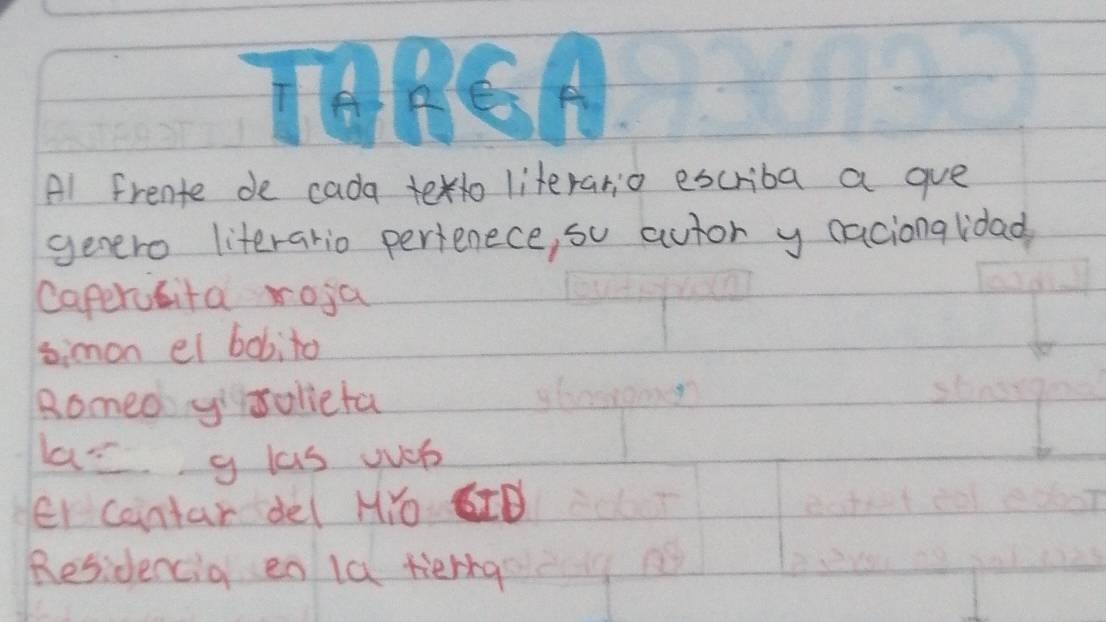 TAREA
Al frente de cada texto literario escriba a que
genero literario pertenece, su autor y nacionalidad
Caperusita roja
simon el bobito
Romeo y Julieta
la y las uvas
El cantar del Mio CID
Residencia en la tierra